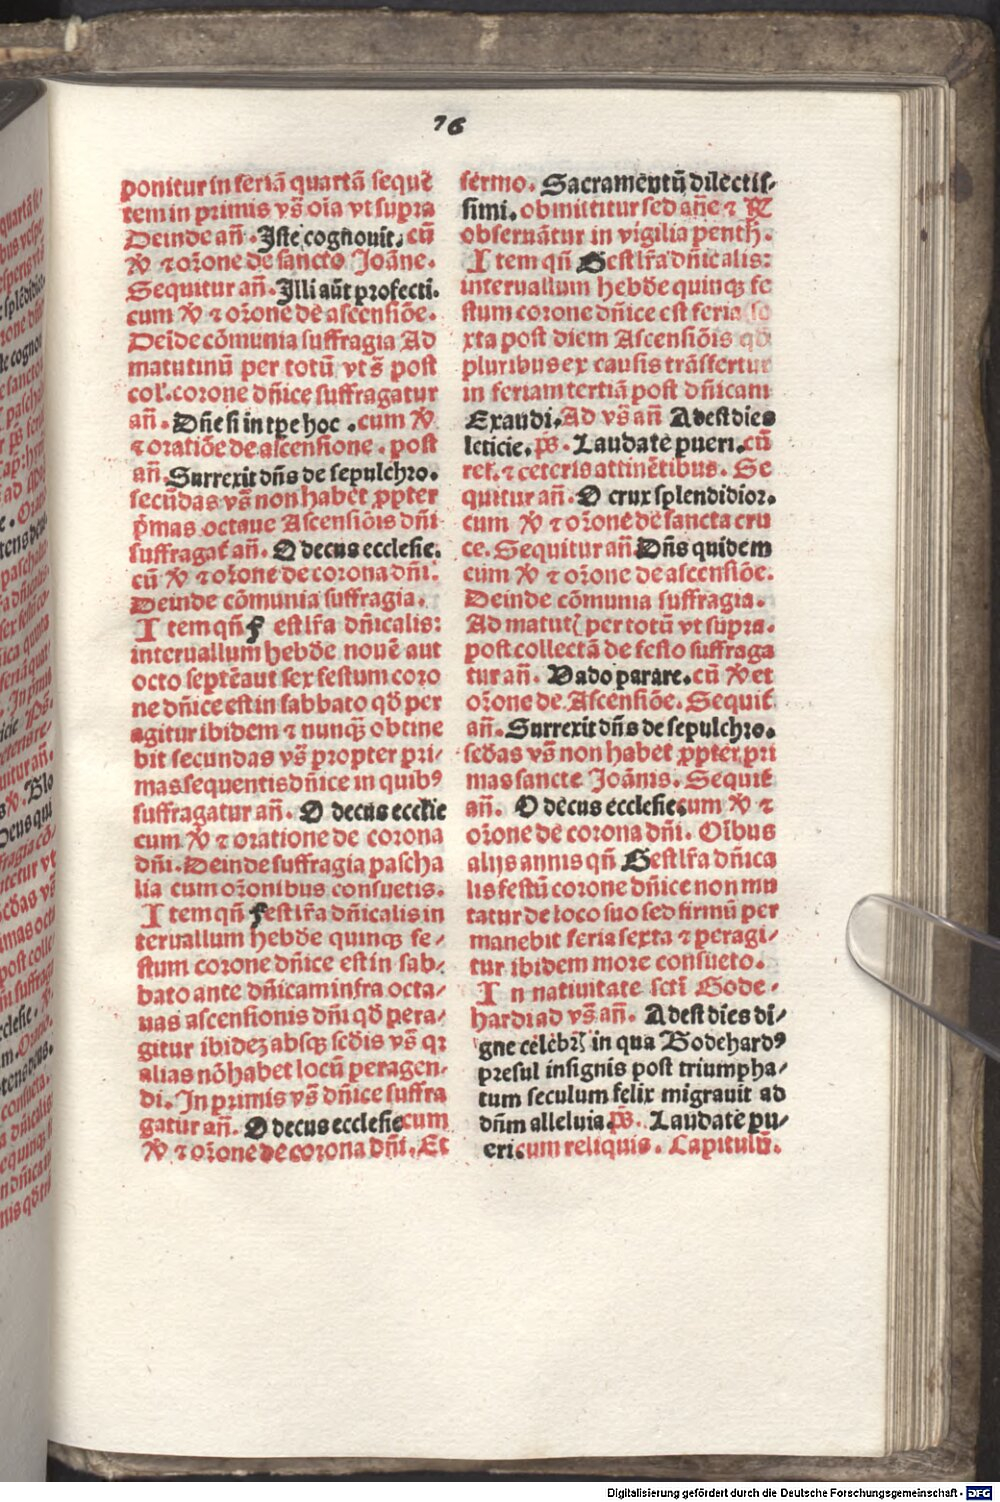 76
ponitur in feriā quartā sequē
tem in primis vs̄ oīa vt supra
Deinde añ. Iste cognouit. cū
℣ ⁊ oꝛōne de sancto Joāne.
Sequitur añ. Illi aūt profecti.
cum ℣ ⁊ oꝛōne de ascensiōe.
Deīde cōmunia suffragia Ad
matutinū per totū vt s̄ post
col'. corone dn̄ice suffragatur
añ. Dn̄e si in tpe hoc. cum ℣
⁊ oratiōe de ascensione. post
añ. Surrexit dn̄s de sepulchro.
secūdas vs̄ non habet ꝓpter
p̄mas octaue Ascensiōis dn̄i
suffragat̄ añ. O decus ecclesie.
cū ℣ ⁊ oꝛōne de corona dn̄i.
Deinde cōmunia suffragia.
Item qn̄ f est lr̄a dn̄icalis:
interuallum hebdē nouē aut
octo septē aut sex festum coro
ne dn̄ice est in sabbato qd̄ per
agitur ibidem ⁊ nunqꝫ obtine
bit secundas vs̄ propter pri-
mas sequentis dn̄ice in quibꝰ
suffragatur añ. O decus eccl̄ie
cum ℣ ⁊ oratione de corona
dn̄i. Deinde suffragia pascha
lia cum oꝛōnibus consuetis.
Item qn̄ f est lr̄a dn̄icalis in
teruallum hebdē quinqꝫ fe-
stum corone dn̄ice est in sab-
bato ante dn̄icam infra octa-
uas ascensionis dn̄i qd̄ pera-
gitur ibideꝫ absqꝫ scd̄is vs̄ qꝛ
alias nō habet locū peragen-
di. In primis vs̄ dn̄ice suffra
gatur añ. O decus ecclesie cum
℣ ⁊ oꝛōne de corona dn̄i. Et
sermo. Sacramentū dilectis-
simi. obmittitur sed añe ⁊ ℟
obseruātur in vigilia penth̄.
Item qn̄ G est lr̄a dn̄icalis:
interuallum hebdē quinqꝫ fe
stum corone dn̄ice est feria se
xta post diem Ascensiōis qd̄
pluribus ex causis trāsfertur
in feriam tertiam post dn̄icam
Exaudi. Ad vs̄ añ Adest dies
leticie. ps̄. Laudate pueri. cū
ret. ⁊ ceteris attinētibus. Se
quitur añ. O crux splendidior.
cum ℣ ⁊ oꝛōne de sancta cru
ce. Sequitur añ Dn̄s quidem
cum ℣ ⁊ oꝛōne de ascensiōe.
Deinde cōmunia suffragia.
Ad matut̄ per totū vt supra.
post collectā de festo suffraga
tur añ. Vado parare. cū ℣ et
oꝛōne de Ascensiōe. Sequit̄
añ. Surrexit dn̄s de sepulchro.
scd̄as vs̄ non habet ꝓpter pri
mas sancte Joānis. Sequit̄
añ. O decus ecclesie. cum ℣ ⁊
oꝛōne de corona dn̄i. Oībus
alijs annis qn̄ G est lr̄a dn̄ica
lis festū corone dn̄ice non mu
tatur de loco suo sed firmū per
manebit feria sexta ⁊ peragi-
tur ibidem more consueto.
In natiuitate scti Gode-
hardi ad vs̄ añ. Adest dies di-
gne celebrꝭ in qua Godehardꝰ
presul insignis post triumpha-
tum seculum felix migrauit ad
dn̄m alleluia. ps̄. Laudate pu-
eri. cum reliquis. Capitulū.
Digitalisierung gefördert durch die Deutsche Forschungsgemeinschaft - DFG